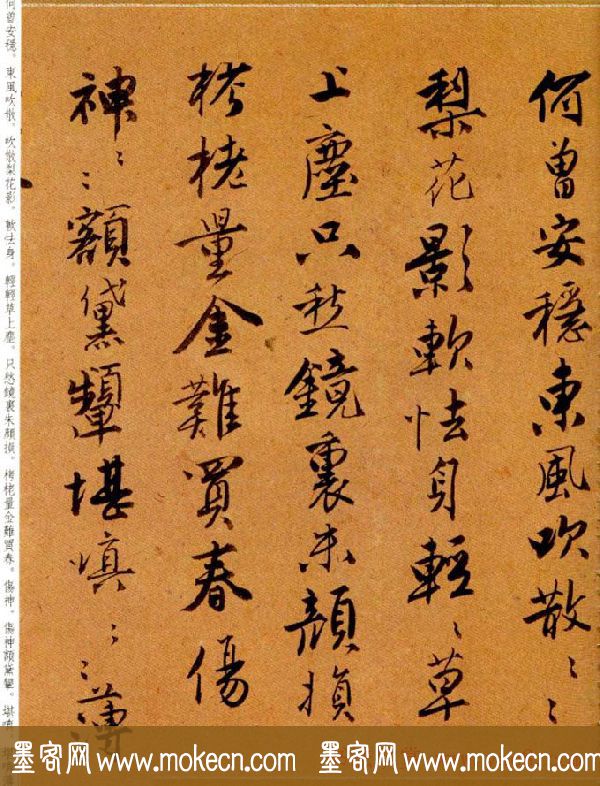 何曾安穩東風吹散〻〻
梨花影軟怯身輕〻草
上塵只愁鏡裏朱顔損
栲栳量金難買春傷
神〻〻額黛顰堪嗔〻〻薄
何曾安穩。東風吹散。吹散梨花影。軟怯身。輕輕草上塵。只愁鏡裏朱顔損。栲栳量金難買春。傷神。傷神額黛顰。堪嗔
墨客网 www.mokecn.com 墨客网 www.mokecn.com